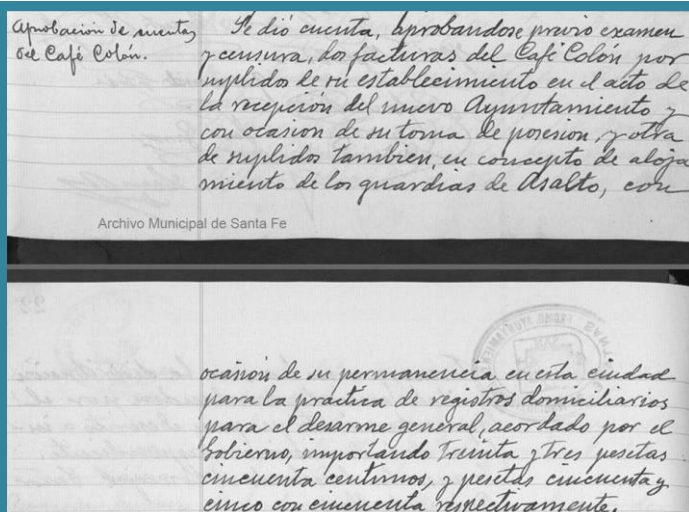 Aprobación de cuentas
del Café Colón.
Se dió cuenta, aprobandose previo examen
y censura, dos facturas del Café Colón por
suplidos de su establecimiento en el acto de
la recepción del nuevo Ayuntamiento y
con ocasion de su toma de posesion, y otra
de suplidos tambien, en concepto de aloja
miento de los guardias de Asalto, con
Archivo Municipal de Santa Fe
ocasión de su permanencia en esta ciudad
para la práctica de registros domiciliarios
para el desarme general, acordado por el
Gobierno, importando treinta y tres pesetas
cincuenta centimos, y pesetas cincuenta y
cinco con cincuenta respectivamente.